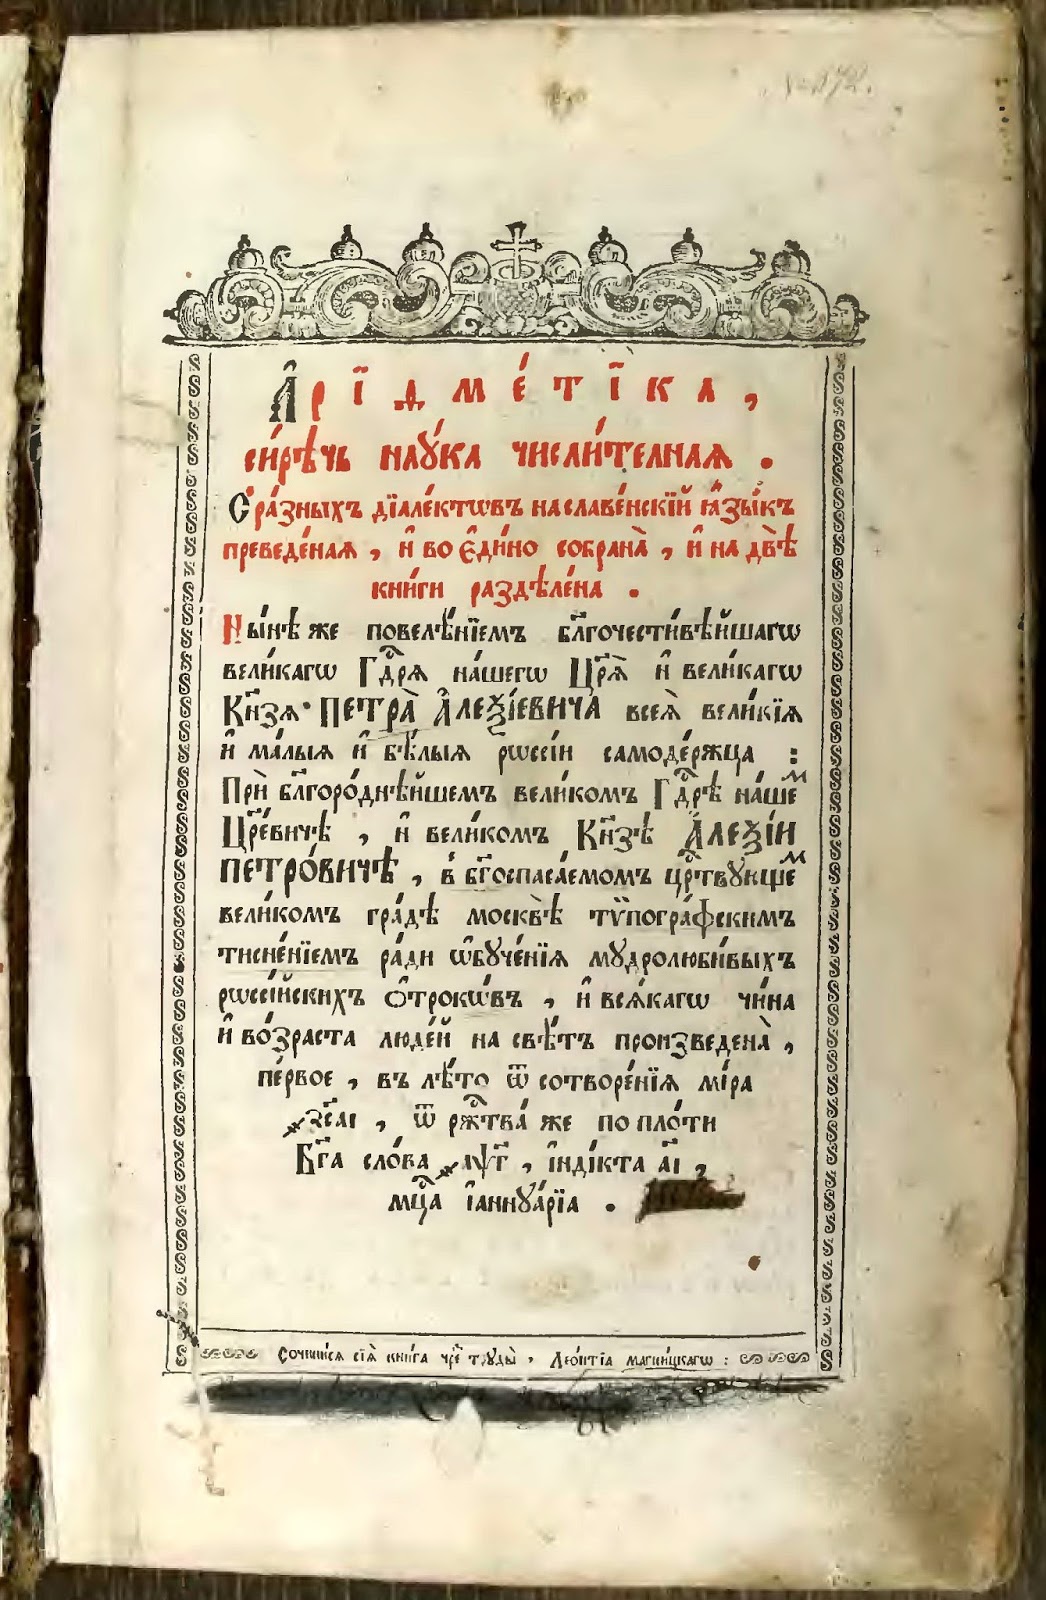 № 872.
А҆рїѳме́тїка,
си́рѣчь наꙋка числи́телная.
С̾ ра́зныхъ дїале́ктѡвъ на славе́нскїй ꙗ҆зы́къ
преведе́ная, и҆ во є҆ди́но собрана̀, и҆ на двѣ̀
кни́ги раздѣле́на.
Ны́нѣ же повелѣ́нїемъ бл҃гочести́вѣйшагѡ
вели́кагѡ Гдⷭ҇рѧ на́шегѡ Цр҃ѧ̀ и҆ вели́кагѡ
Кн҃зѧ ПЕТРА̀ А҆ЛЕѮІ́ЕВИЧА всеѧ̀ вели́кїѧ
и҆ ма́лыѧ и҆ бѣ́лыѧ рѡссі́и самоде́ржца:
Прѝ бл҃горо́днѣйшемъ вели́комъ Гдⷭ҇рѣ на́шеⷨ
Цр҃е́вичѣ, и҆ вели́комъ Кн҃зѣ А҆ЛЕѮІ́И
ПЕТРО́ВИЧѢ, в̾ бг҃оспаса́емомъ црⷭ҇твꙋющеⷨ
вели́комъ гра́дѣ москвѣ̀ тѷпогра́фскимъ
тисне́нїемъ ра́ди ѡ҆бꙋче́нїѧ мꙋдролюби́выхъ
рѡссі́йскихъ ѻ҆́трокѡвъ, и҆ всѧ́кагѡ чи́на
и҆ во́зраста люде́й на свѣ́тъ произведена̀,
пе́рвое, въ лѣ́то ѿ сотворе́нїѧ мі́ра
҂зс҃аі, ѿ рж҇тⷭва̀ же по пло́ти
Бг҃а сло́ва ҂аѱ҃г, і҆нді́кта а҃і,
мцⷭ҇а і҆аннꙋа́рїа.
Сочини́сѧ сїѧ̀ кни́га чреⷥ трꙋды̀, Лео́нтїа магни́цкагѡ: